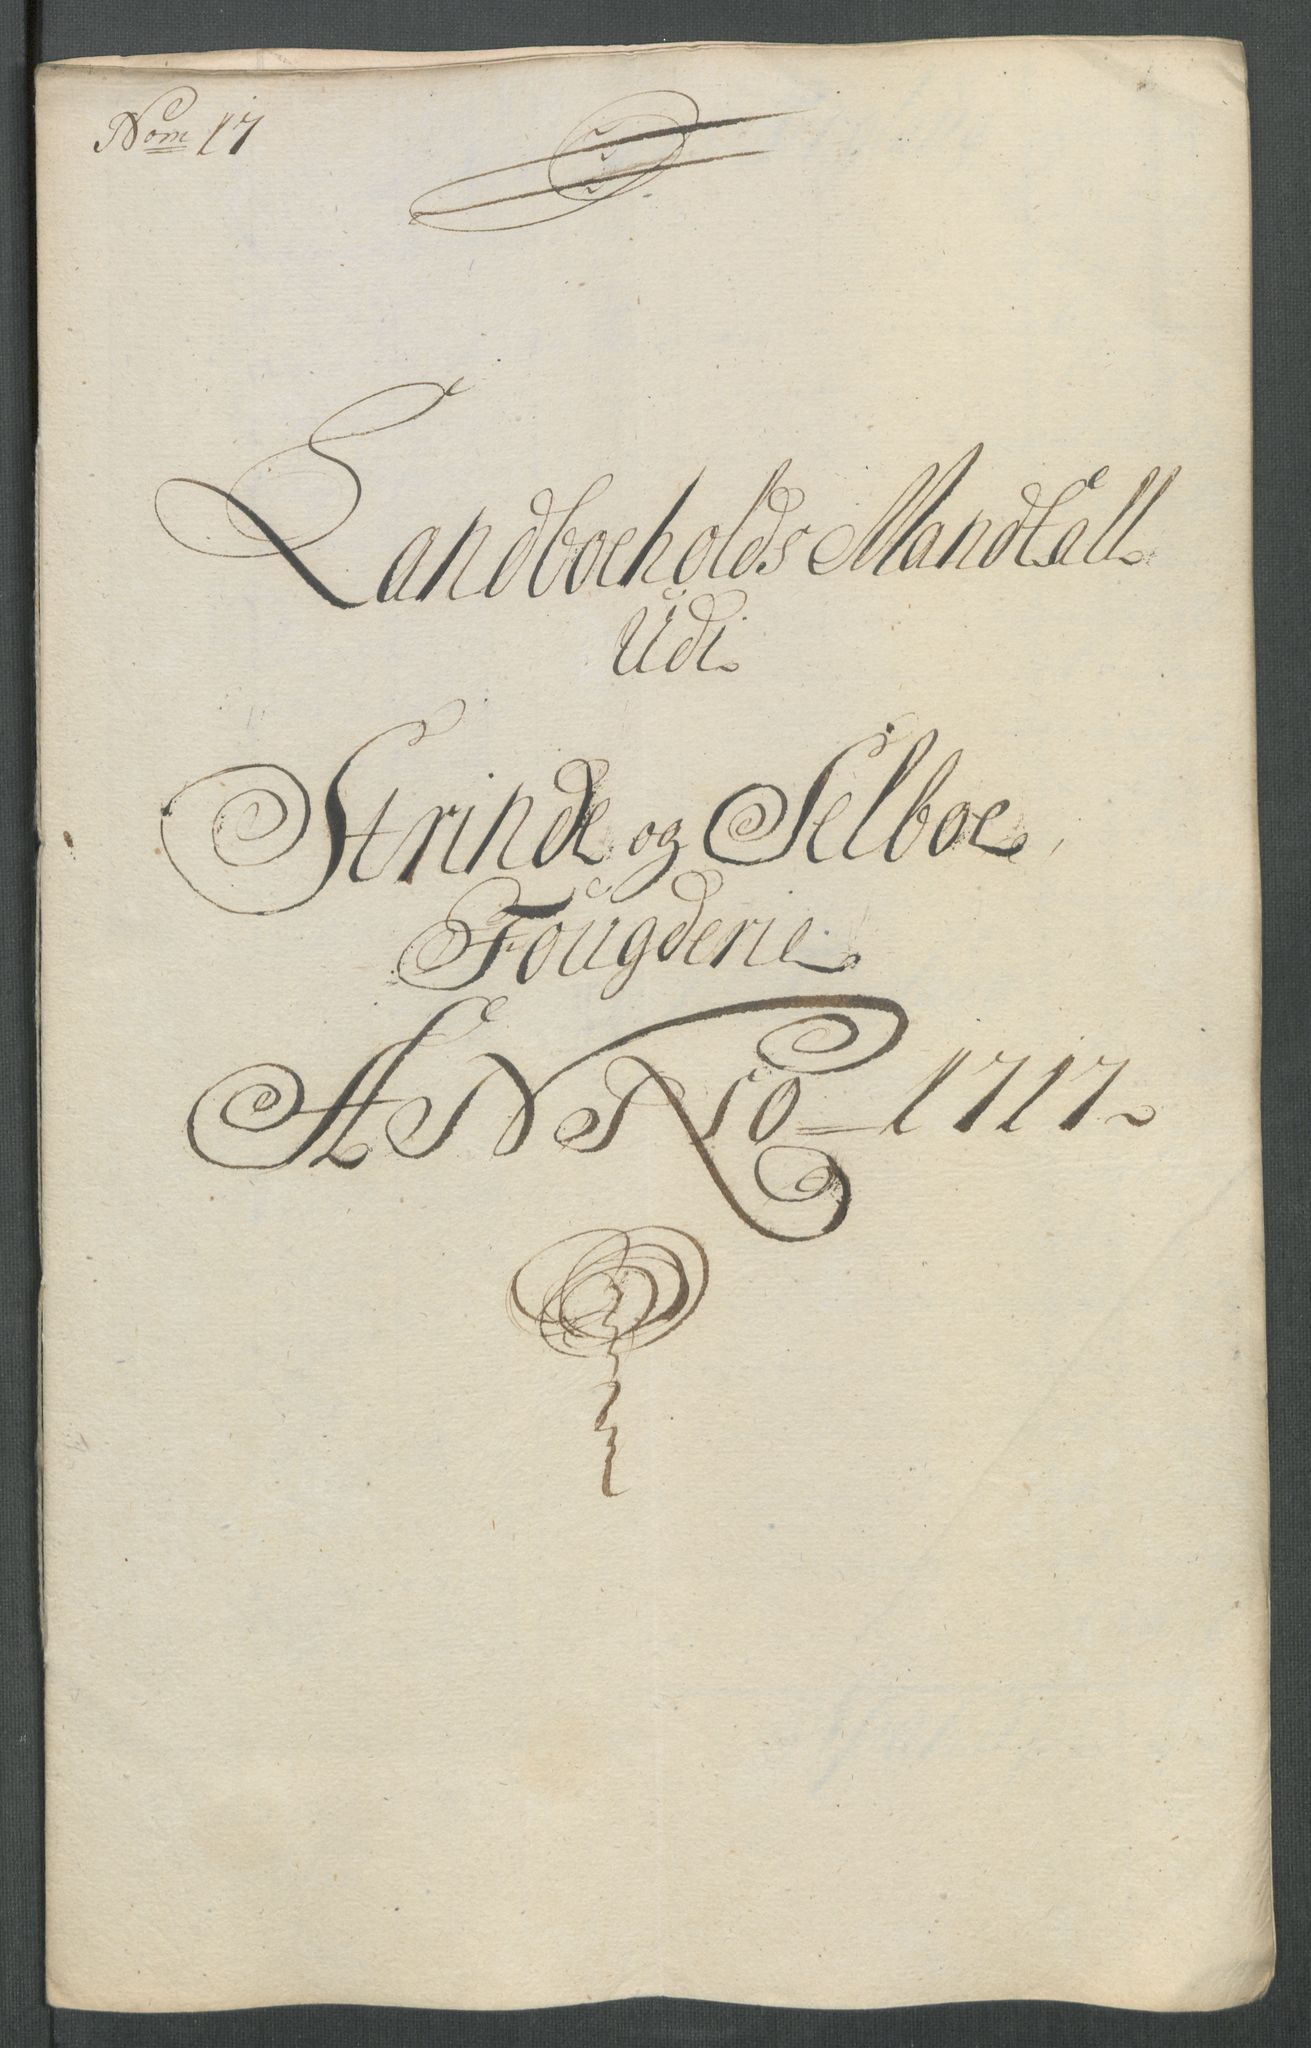 Nom 17
Landboeholds Mandtall
Udi
Strinde og Selboe
Fougderie
ANNO 1717